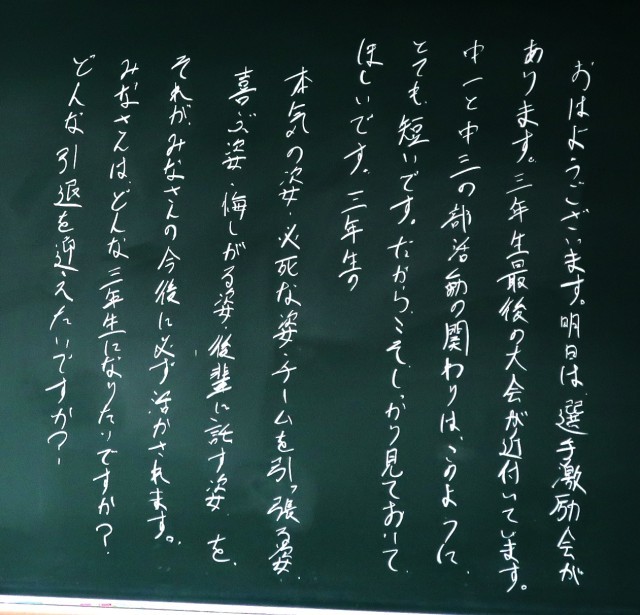 おはようございます。明日は、選手激励会が
あります。三年生最後の大会が近付いています。
中一と中三の部活動の関わりは、このように、
とても短いです。だからこそ、しっかり見ておいて
ほしいです。三年生の
本気の姿・必死な姿・チームを引っ張る姿
喜ぶ姿・悔しがる姿・後輩に託す姿を、
それが、みなさんの今後に必ず活かされます。
みなさんは、どんな三年生になりたいですか？
どんな引退を迎えたいですか？